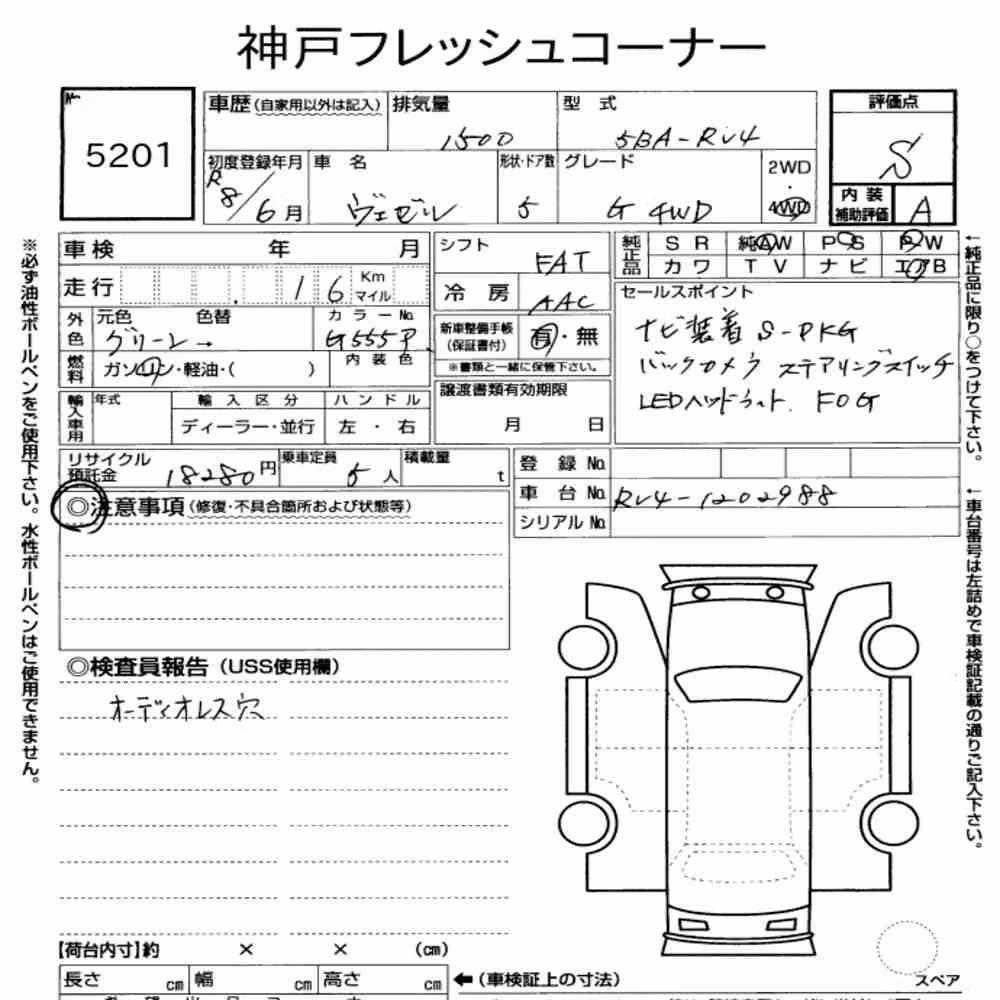 神戸フレッシュコーナー
No. 5201
車歴(自家用以外は記入) 排気量 1500 型式 5BA-RV4 評価点 S
初度登録年月 R8/6月 車名 ヴェゼル 形状・ドア数 5 グレード G 4WD 2WD・4WD 内装補助評価 A
車検 年 月 シフト FAT 純正品 SR 純AW PS PW
カワ TV ナビ エアB
走行 16 Km マイル 冷房 AAC セールスポイント
外色 元色 グリーン→ 色替 カラーNo. G555P 新車整備手帳(保証書付) 有・無 ナビ装着S-PKG
燃料 ガソリン・軽油・( ) 内装色 ※書類と一緒に保管下さい。 バックカメラ ステアリングスイッチ
輸入車用 年式 輸入区分 ハンドル 譲渡書類有効期限 LEDヘッドライト FOG
ディーラー・並行 左・右 月 日
リサイクル預託金 18280円 乗車定員 5人 積載量 t 登録No.
車台No. RV4-1202988
シリアルNo.
◎注意事項(修復・不具合箇所および状態等)
◎検査員報告(USS使用欄)
オーディオレス穴
【荷台内寸】約 × × (cm)
長さ cm 幅 cm 高さ cm ←(車検証上の寸法) スペア
※必ず油性ボールペンをご使用下さい。水性ボールペンはご使用できません。
←純正品に限り○をつけて下さい。
←車台番号は左詰めで車検証記載の通りご記入下さい。